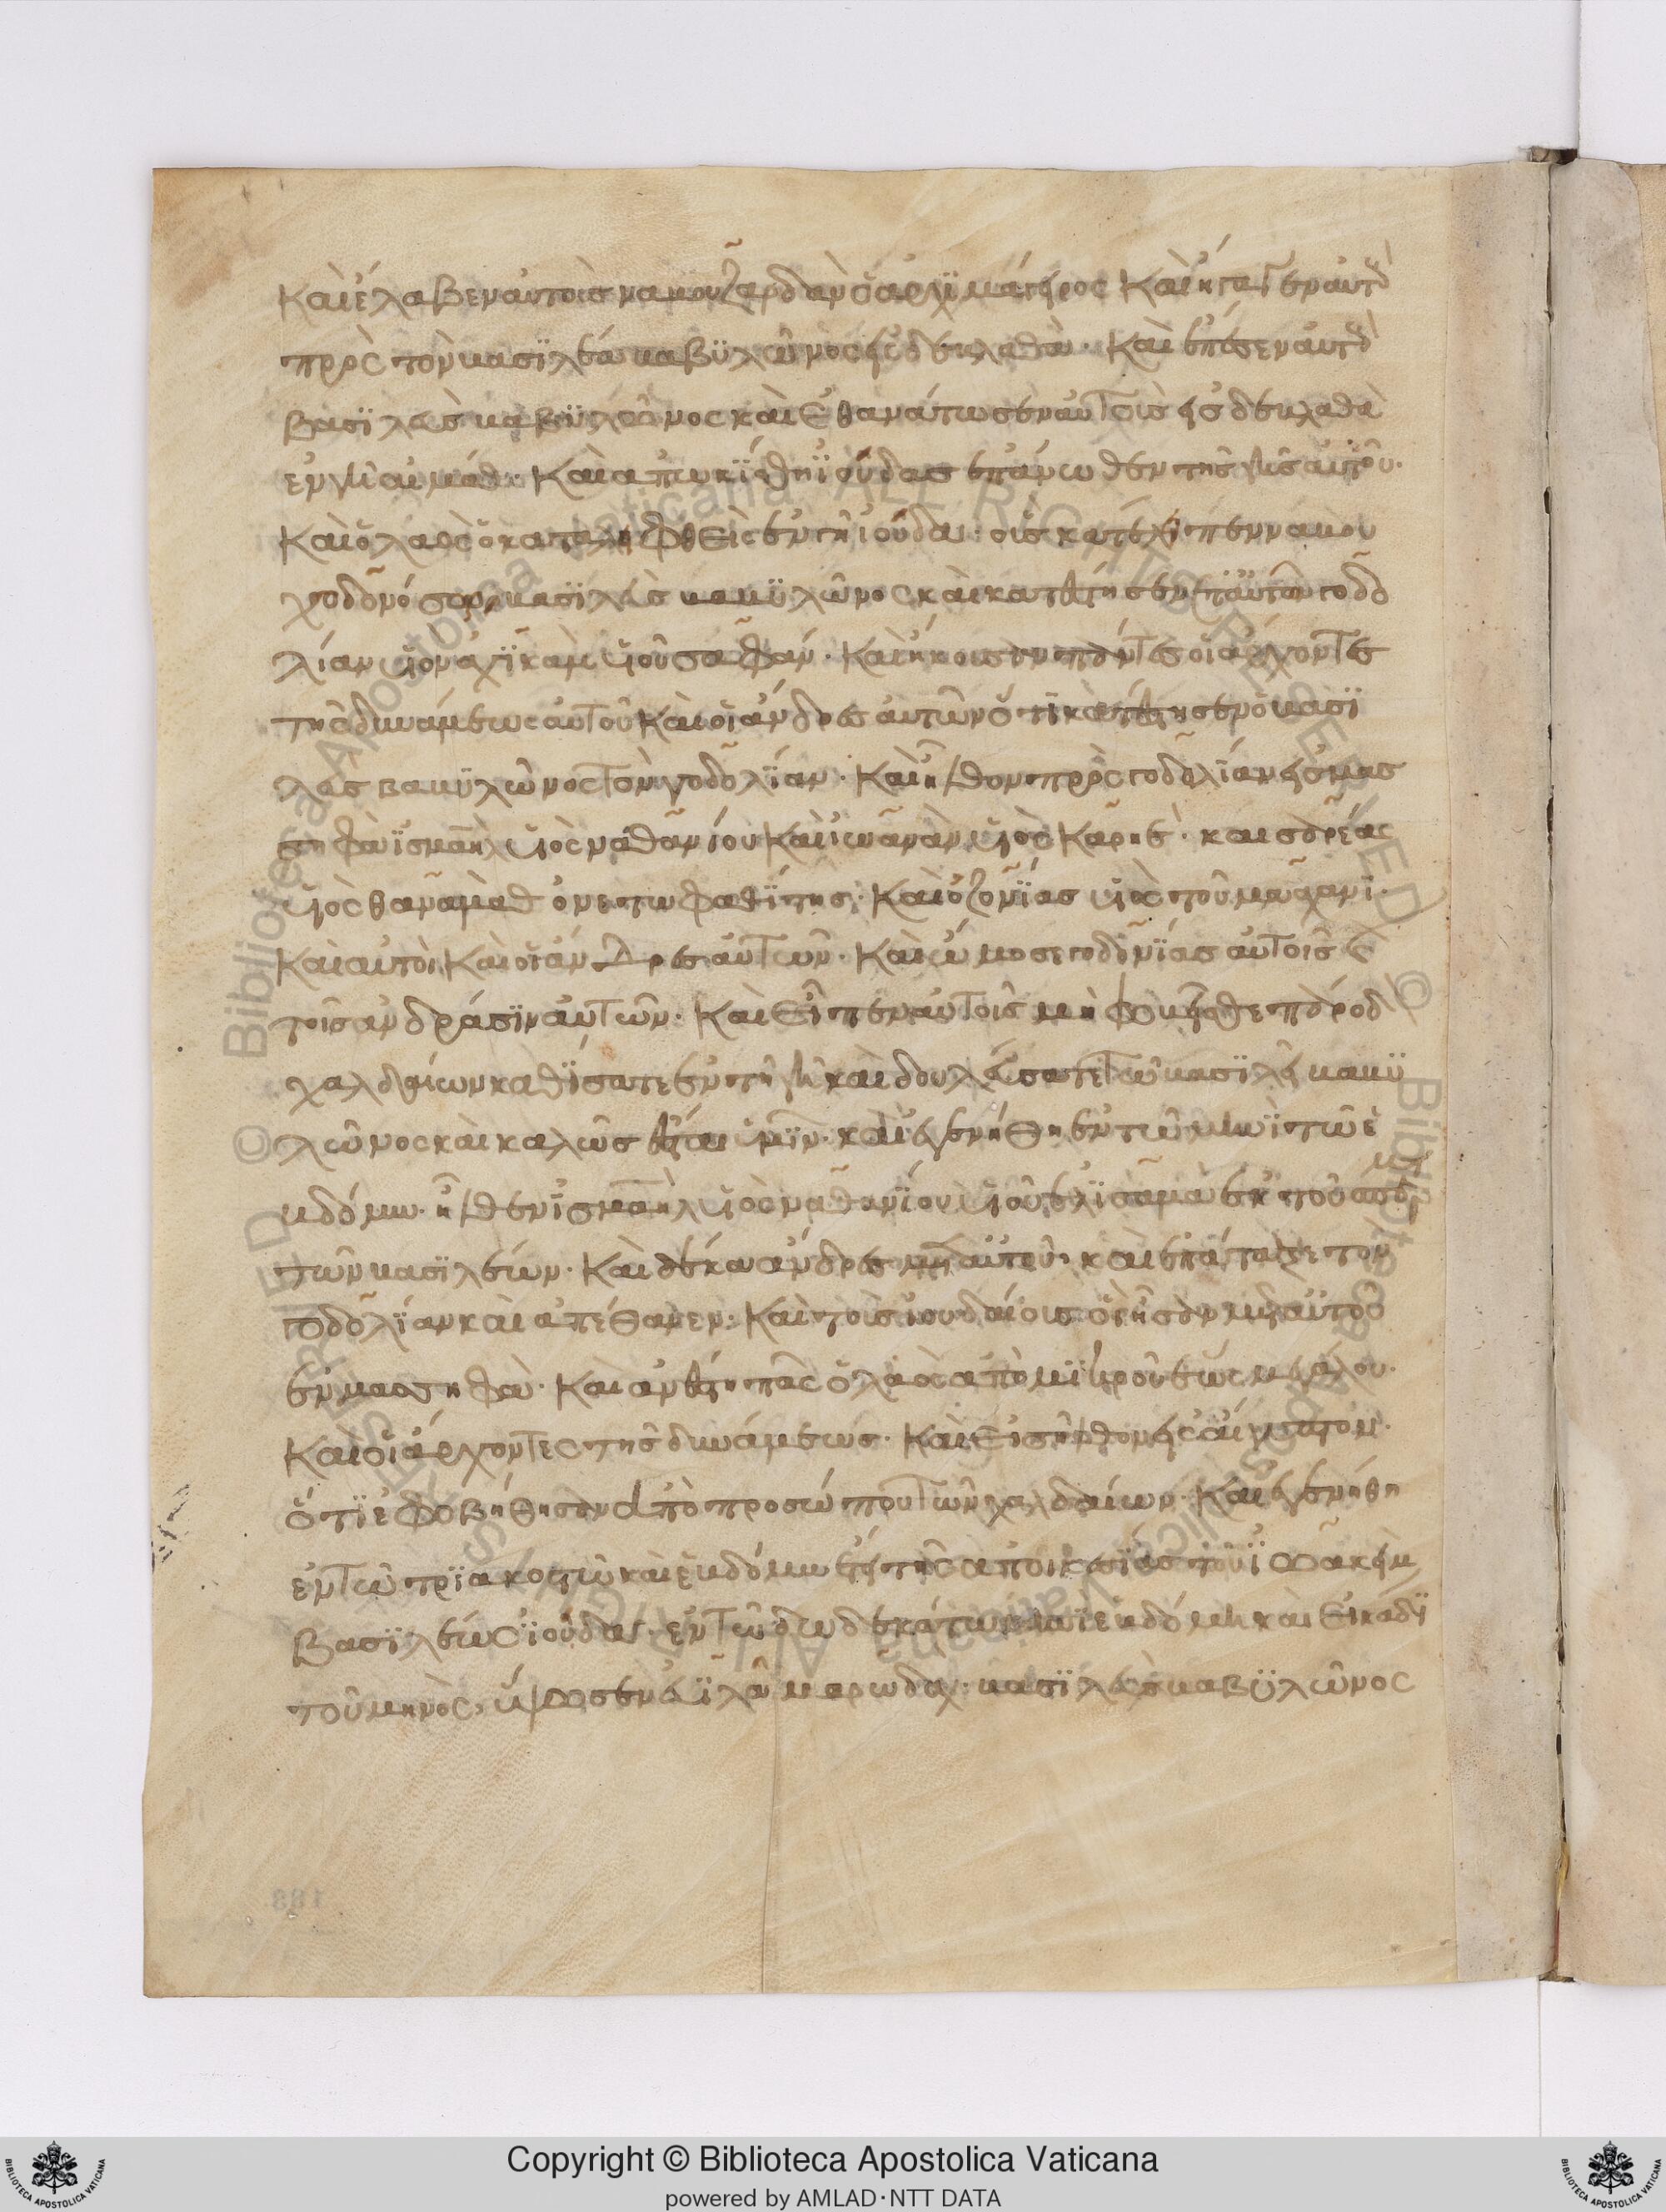 καὶ ἔλαβεν αὐτοὺς ναβουζαρδὰν ὁ ἀρχϊμάγειρος καὶ ἤγαγεν αὐτοὺς
πρὸς τὸν βασϊλέα βαβϋλῶνος εἰς δεβλαθὰ· καὶ ἔπαισεν αὐτοὺς
βασϊλεὺς βαβϋλῶνος καὶ ἐθανάτωσεν αὐτοὺς εἰς δεβλαθὰ
ἐν γῆ αἰμάθ· καὶ ἀπωκίσθη ϊούδας ἐπάνωθεν τῆς γῆς αὐτοῦ·
καὶ ὁ λαὸς ὁ καταληφθεὶς ἐν γῆ ἰούδα· οὓς κατέλιπεν ναβου
χοδονόσορ βασϊλεὺς βαβϋλῶνος καὶ κατέστησεν ἐπ αὐτῶν γοδο
λίαν υἱὸν ἀχϊκὰμ υἱοῦ σαφάν· καὶ ἤκουσαν πάντες οἱ ἄρχοντες
τῆς δυνάμεως αὐτοῦ καὶ οἱ ἄνδρες αὐτῶν ὅτι κατέστησεν ὁ βασϊ
λεὺς βαβϋλῶνος τὸν γοδολϊαν· καὶ ἦλθον πρὸς γοδολίαν εἰς μασ
σηφὰ ϊσμαὴλ υἱὸς ναθανίου καὶ ϊωανὰν υἱὸς καρηέ· καὶ σαρέας
υἱὸς θαναμὰθ ὁ νετωφαθϊτης· καὶ ὀζονϊας υἱὸς τοῦ μαχαθί·
καὶ αὐτοὶ καὶ οἱ ἄνδρες αὐτῶν· καὶ ὤμοσε γοδολϊας αὐτοῖς καὶ
τοῖς ἀνδράσϊν αὐτῶν· καὶ εἶπεν αὐτοῖς μὴ φοβεῖσθε πάροδον
χαλδαίων καθϊσατε ἐν τῆ γῆ καὶ δουλεύσατε τῶ βασϊλεῖ βαβϋ
λῶνος καὶ καλῶς ἔσται ὑμϊν· καὶ ἐγενήθη ἐν τῶ μηνϊ τῶ ἑ
βδόμω· ἦλθεν ϊσμαὴλ υἱὸς ναθανϊου υἱοῦ ἐλϊσαμὰ ἐκ τοῦ σπέρμα
τῶν βασϊλέων· καὶ δέκα ἄνδρες μετ αὐτοῦ· καὶ ἐπάταξε τὸν
γοδολϊαν καὶ ἀπέθανεν· καὶ τοὺς ϊουδαίους οἳ ἦσαν μετ αὐτοῦ
ἐν μασσηφὰ· καὶ ἀνέστη πᾶς ὁ λαὸς ἀπὸ μϊκροῦ ἕως μεγάλου·
καὶ οἱ ἄρχοντες τῆς δυνάμεως· καὶ εἰσῆλθον εἰς αἴγυπτον·
ὅτϊ ἐφοβήθησαν ἀπὸ προσώπου τῶν χαλδαίων· καὶ ἐγενήθη
ἐν τῶ τρϊακοστῶ καὶ ἑβδόμω ἔτει τῆς ἀποικεσϊας τοῦ ϊωακεὶμ
βασϊλέως ϊούδα· ἐν τῶ δωδεκάτω μηνϊ ἑβδόμη καὶ εἰκάδϊ
τοῦ μηνὸς, ὕψωσεν εὐϊλὰδ μαρωδὰχ· βασϊλεὺς βαβϋλῶνος